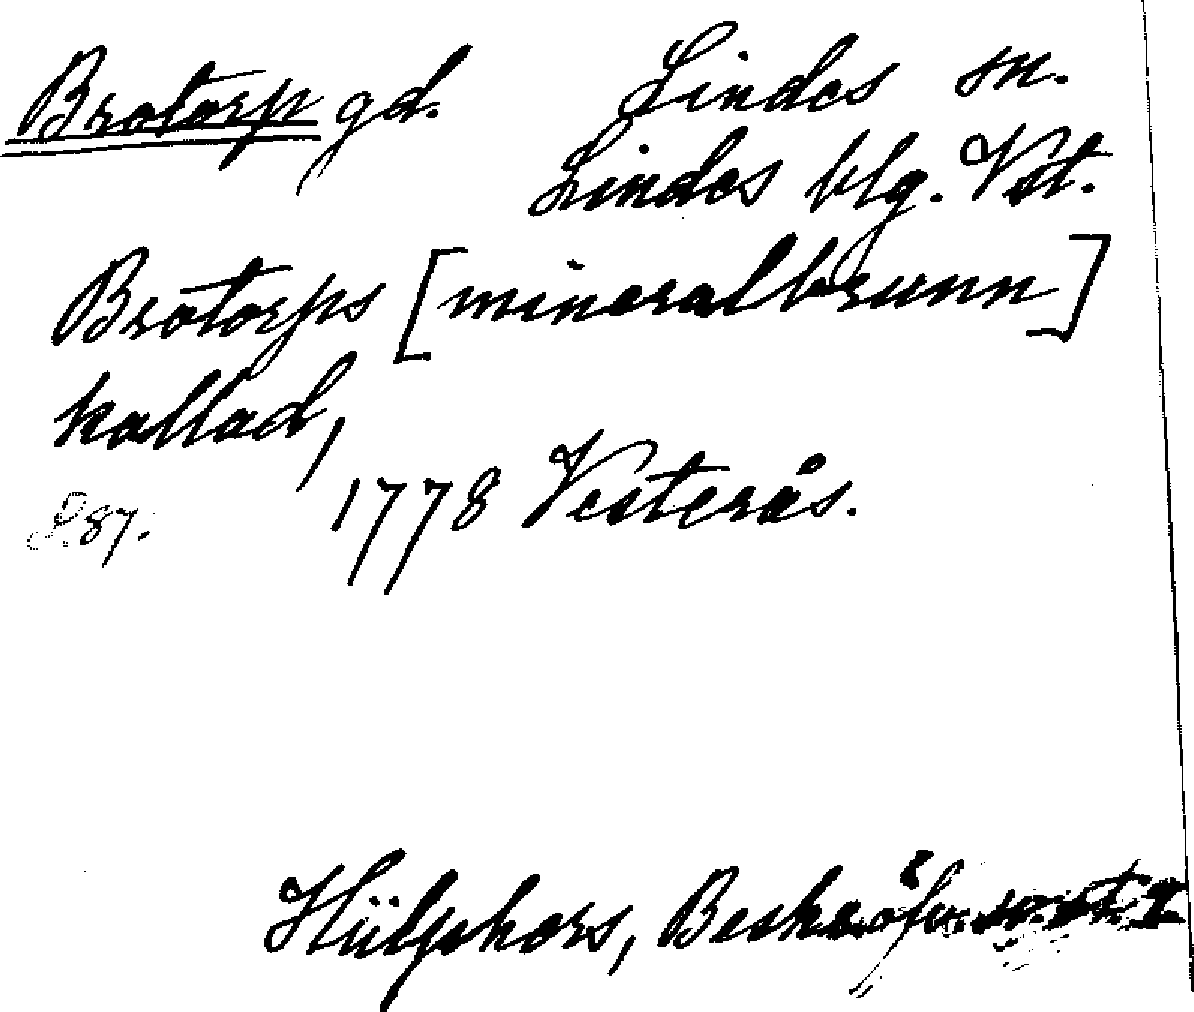 Brotorp gd. Lindes sn.
Lindes blg. Vst.
Brotorps [mineralbrunn]
kallad,
1778 Vesterås.
S. 87.
Hülphers, Beskr. öfv.